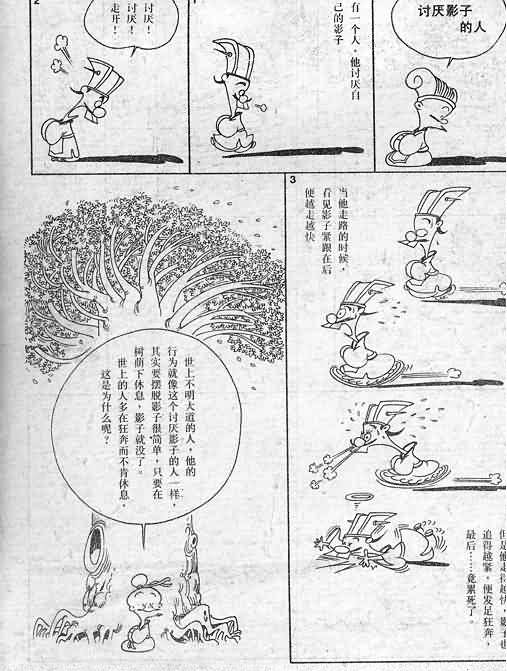 讨厌影子
的人
1
有一个人，他讨厌自
己的影子
2
讨厌！
讨厌！
走开！
3
当他走路的时候，
看见影子紧跟在后
便越走越快
但是他走得越快，影子也
追得越紧，便发足狂奔，
最后……竟累死了。
世上不明大道的人，他的
行为就像这个讨厌影子的人一样，
其实要摆脱影子很简单，只要在
树荫下休息，影子就没了。
世上的人多在狂奔而不肯休息，
这是为什么呢？